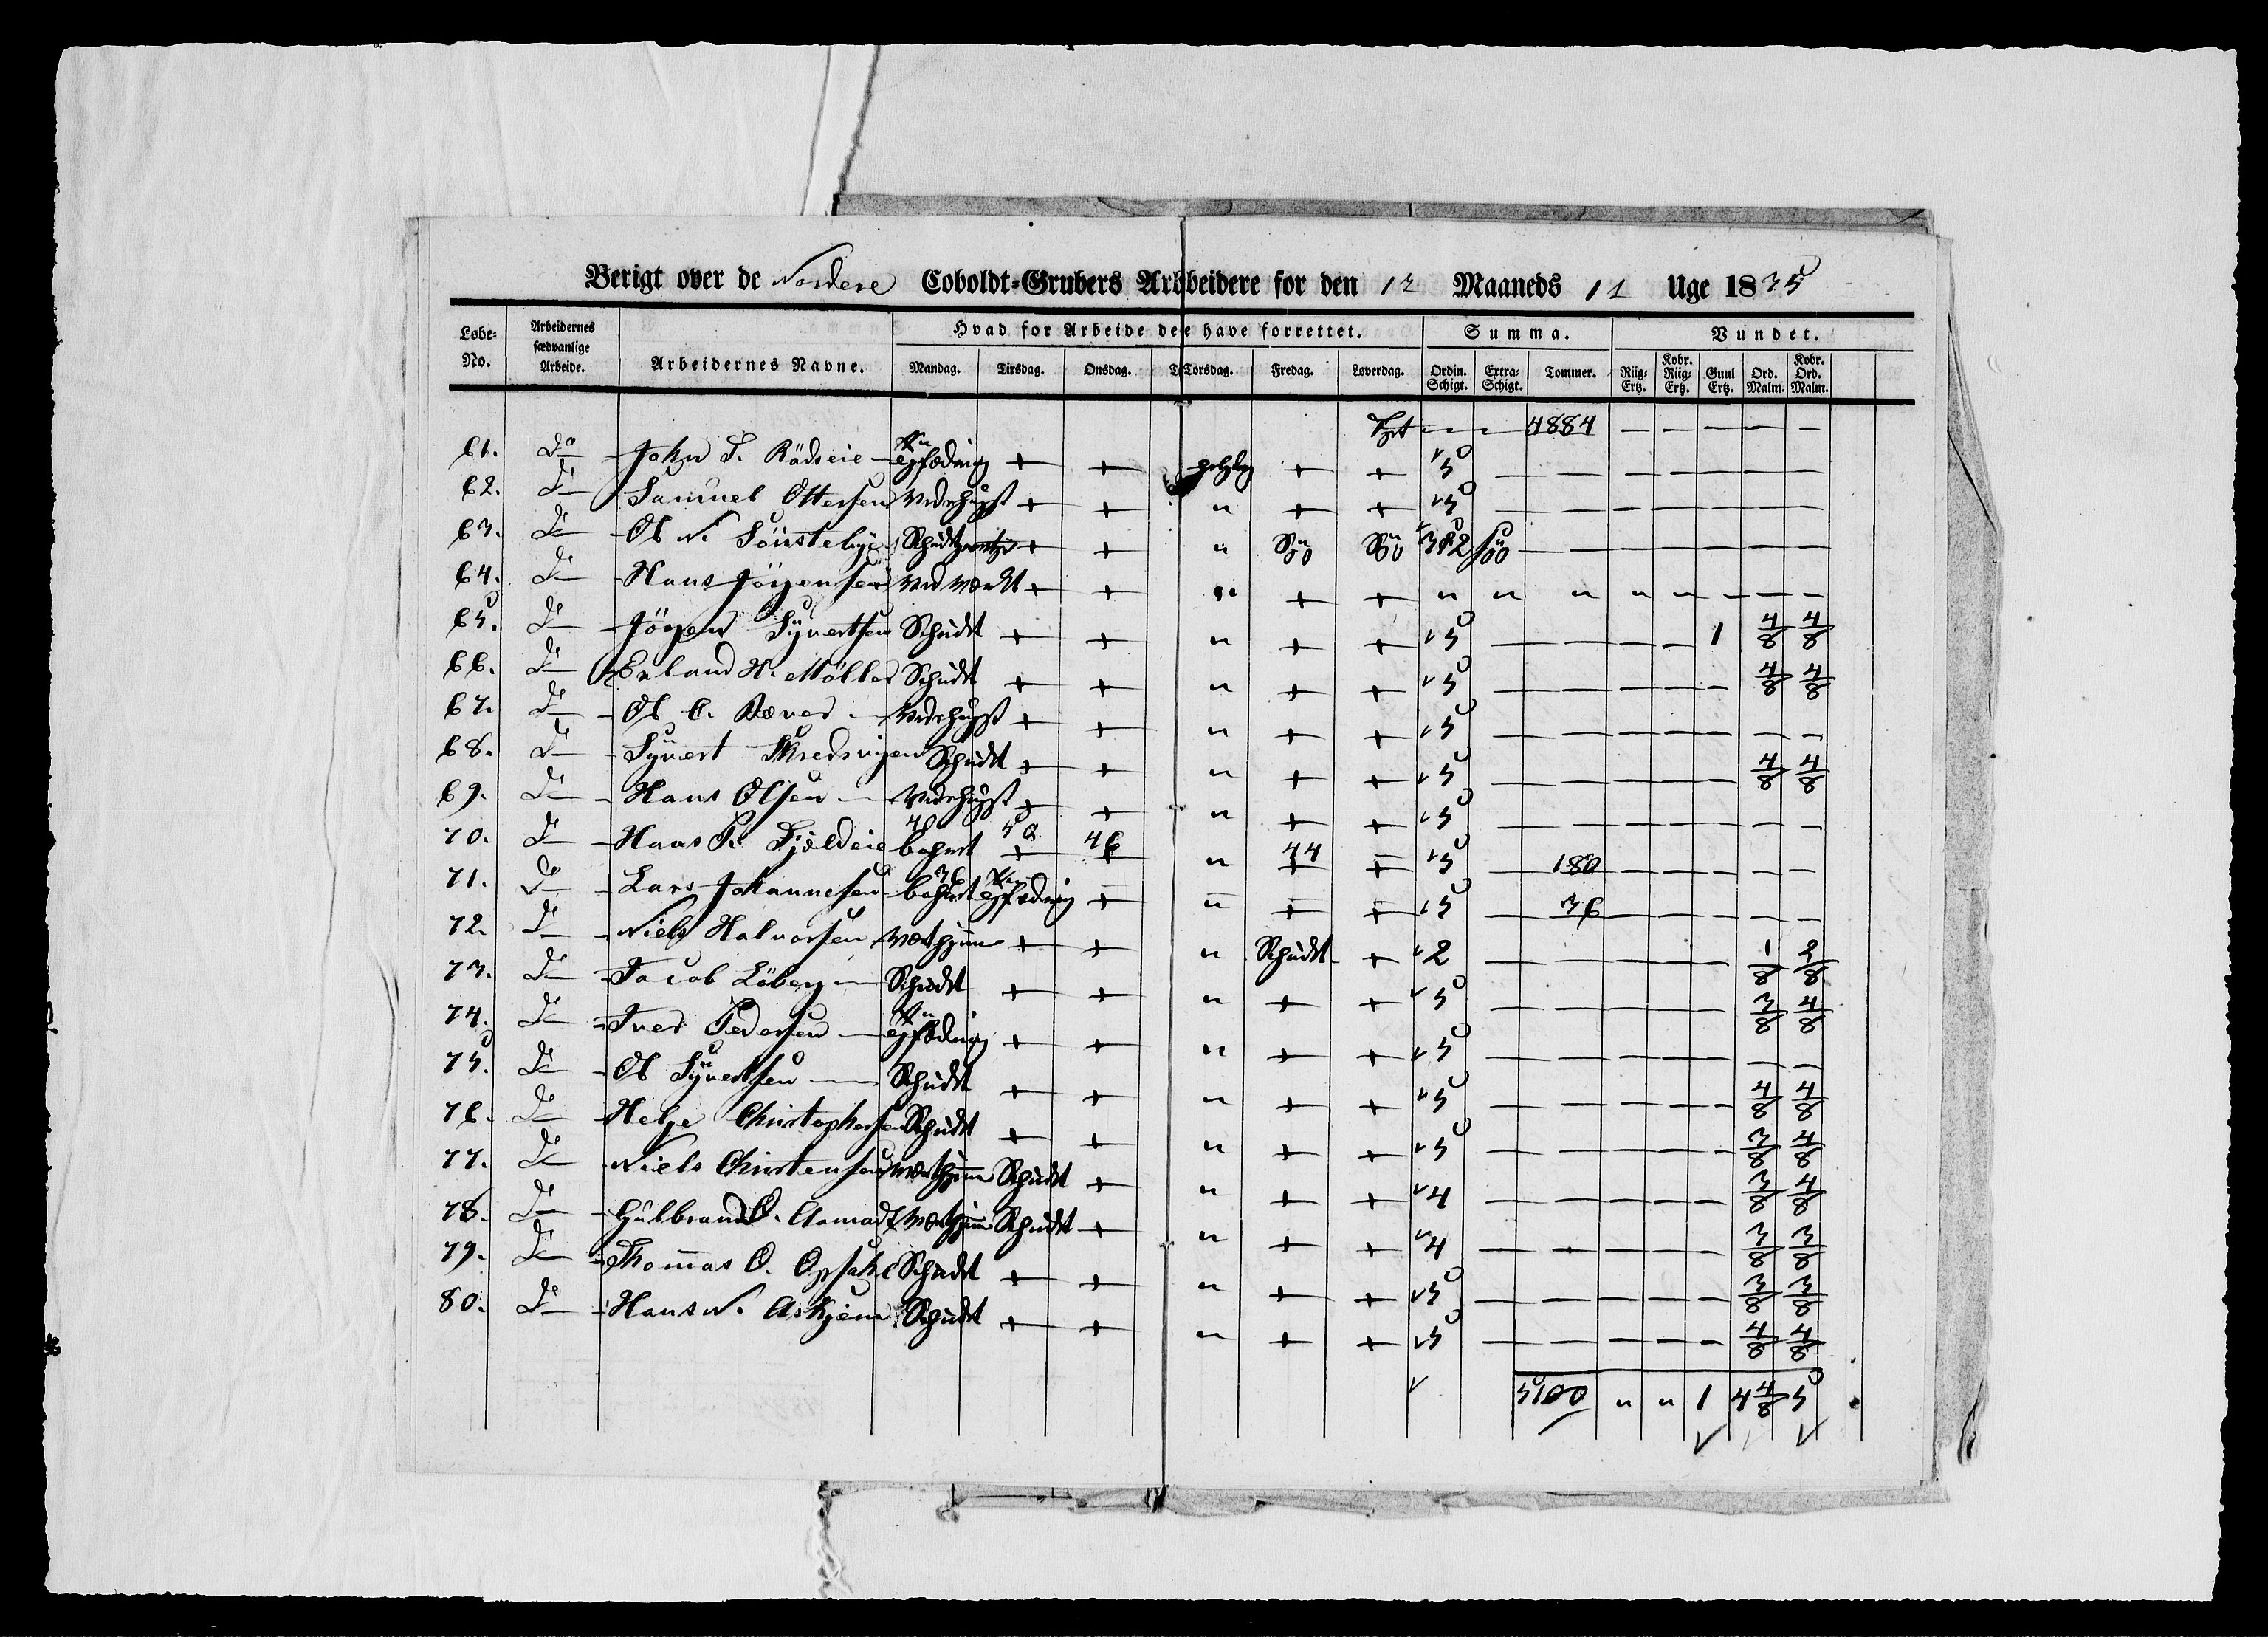 Berigt over de Nordere Coboldt-Grubers Arbbeidere for den 12 Maaneds 11 Uge 1835
Løbe-No. Arbeidernes sædvanlige Arbeide. Arbeidernes Navne. Hvad for Arbeide de have forrettet. Summa. Vundet.
Mandag. Tirsdag. Onsdag. Torsdag. Fredag. Løverdag. Ordin. Schigt. Extra-Schigt. Tommer. Riig-Ertz. Kobr. Riig-Ertz. Guul Ertz. Ord. Malm. Kobr. Ord. Malm.
4884 — — — — —
61. Do John T. Rädseie + + + + 5 — — — — — — —
62. Do Samuel Ottersen + + " + + 5 — — — — — — —
63. Do Ol N. Sönstebye Schudt + + "
64. Do Hans Jörgensen + + " + + " " " " " — — —
65. Do Jörgen Syvertsen Schudt + + " + + 5 — — — — 1 4/8 4/8
66. Do Erland H. Möller Schudt + + " + + 5 — — — — — 4/8 4/8
67. Do Ol C. Dæved + + " + + 5 — — — — — — —
68. Do Syvert Skredsvigen Schudt + + " + + 5 — — — — — 4/8 4/8
69. Do Hans Olsen + + " + + 5 — — — — — — —
70. Do Hans P. Fjeldeie bohret 40 50 46 " 44 + 5 — 180 — — — — —
71. Do Lars Johannesen bohret 36 + " + + 5 — 36 — — — — —
72. Do Niels Halvorsen + + " Schudt + 2 — — — — — 1/8 2/8
73. Do Jacob Löberg Schudt + + " + + 5 — — — — — 3/8 4/8
74. Do Iver Pedersen + + " + + 5 — — — — — — —
75. Do Ol Syvertsen Schudt + + " + + 5 — — — — — 4/8 4/8
76. Do Helge Christophersen Schudt + + " + + 5 — — — — — 3/8 4/8
77. Do Niels Christensen Schudt + " + + 4 — — — — — 3/8 4/8
78. Do Gulbrand Schudt + " + + 4 — — — — — 3/8 3/8
79. Do Thomas O. Opsahl Schudt + + " + + 5 — — — — — 3/8 3/8
80. Do Hans N. Askjem Schudt + + " + + 5 — — — — — 4/8 4/8
5100 " " 1 4 4/8 5